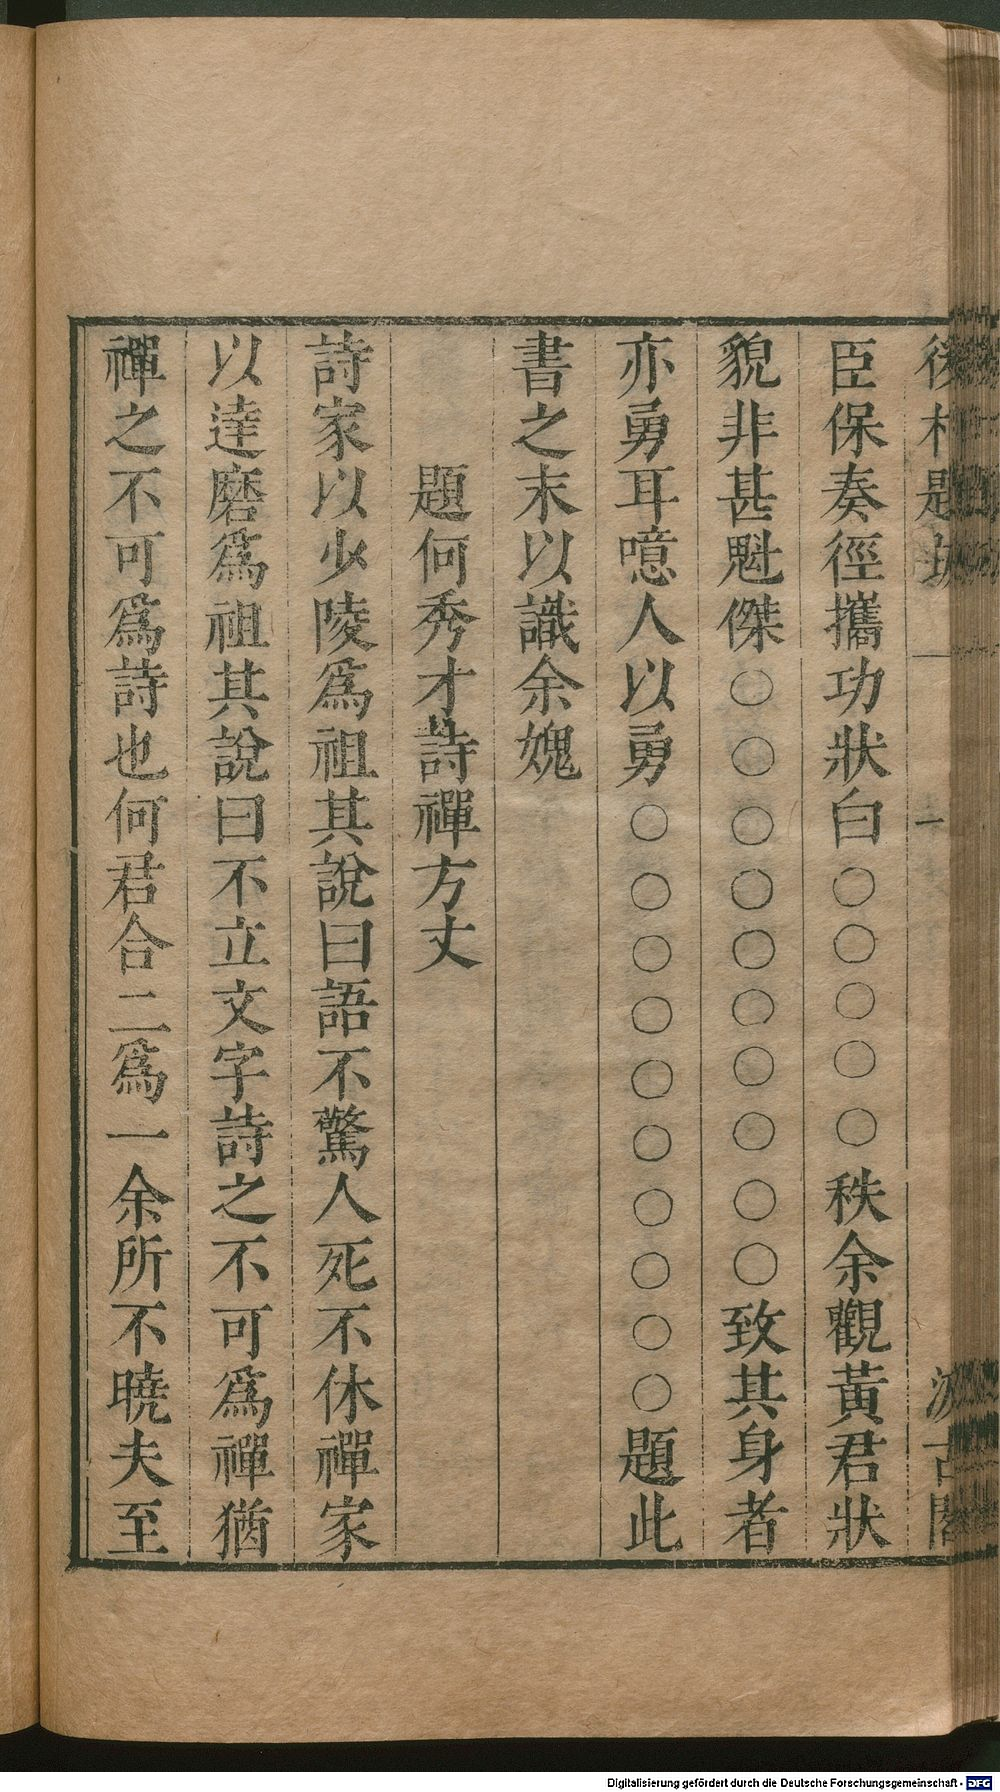 臣保奏徑攜功狀白○○○○○秩余觀黃君狀
貌非甚魁傑○○○○○○○○○○致其身者
亦勇耳噫人以勇○○○○○○○○○○題此
書之末以識余媿
題何秀才詩禪方丈
詩家以少陵爲祖其說曰語不驚人死不休禪家
以達磨爲祖其說曰不立文字詩之不可爲禪猶
禪之不可爲詩也何君合二爲一余所不曉夫至
Digitalisierung gefördert durch die Deutsche Forschungsgemeinschaft - DFG